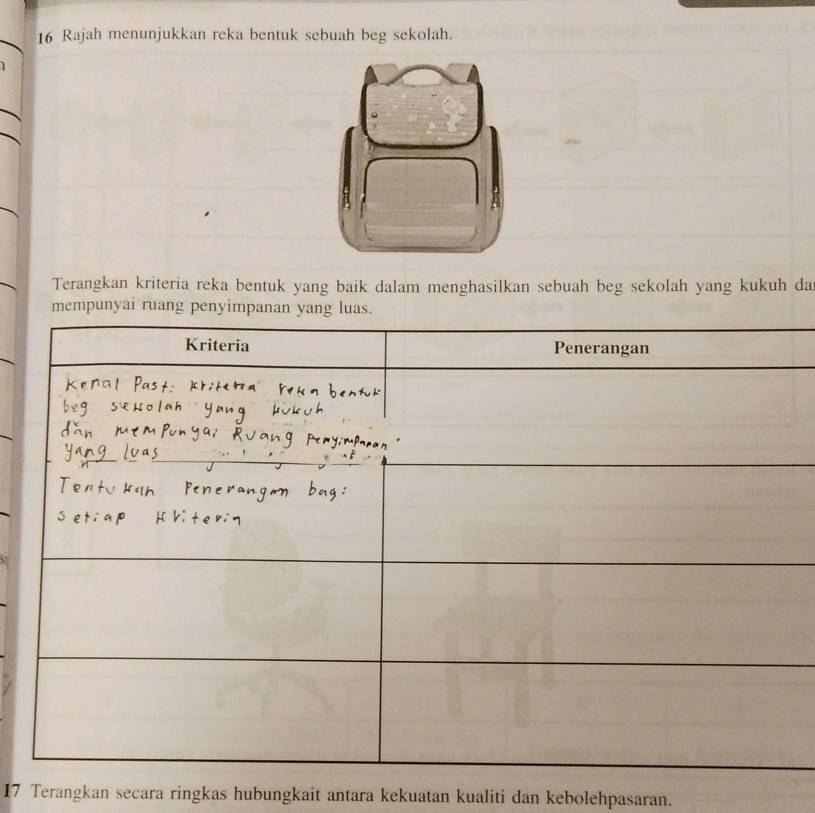 16 Rajah menunjukkan reka bentuk sebuah beg sekolah.
Terangkan kriteria reka bentuk yang baik dalam menghasilkan sebuah beg sekolah yang kukuh da
mempunyai ruang penyimpanan yang luas.
Kriteria
Penerangan
Kenal Past: kriteria reka bentuk
beg sekolah yang kukuh
dan mempunyai Ruang penyimpanan
yang luas
Tentukan Penerangan bag:
setiap Kriteria
17 Terangkan secara ringkas hubungkait antara kekuatan kualiti dan kebolehpasaran.